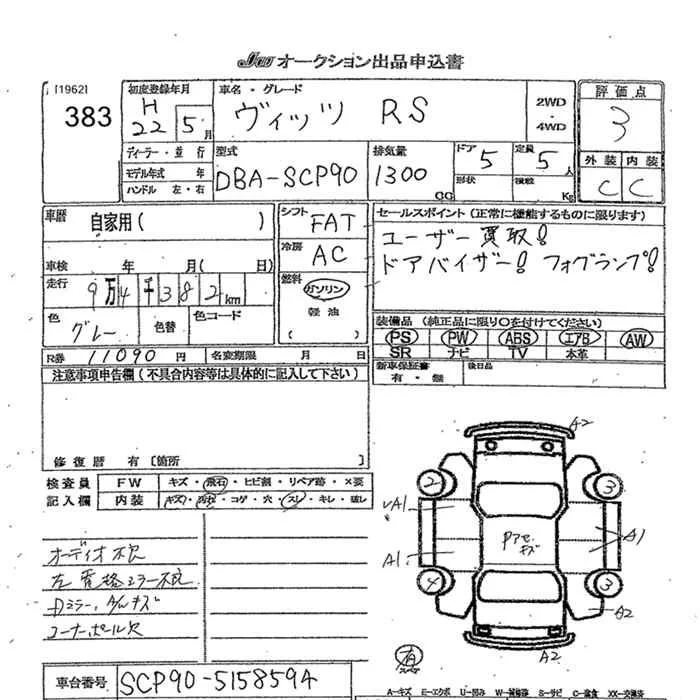 JU オークション出品申込書
[1962]
383
初度登録年月
H
22 5月
車名・グレード
ヴィッツ RS
2WD
・
4WD
評価点
3
ディーラー・並行
モデル年式 年
ハンドル 左・右
型式
DBA-SCP90
排気量
1300
CC
ドア 5
形状
定員 5人
積載 Kg
外装 内装
C C
車歴 自家用( )
シフト FAT
セールスポイント(正常に機能するものに限ります)
ユーザー買取!
ドアバイザー! フォグランプ!
冷房 AC
車検 年 月( 日)
走行 9万4千382km
燃料 ガソリン
軽油
( )
色 グレー
色替
色コード
装備品(純正品に限り○を付けてください)
PS PW ABS エアB AW
SR ナビ TV 本革
R券 11090円 名変期限 月 日
新車保証書
有・無
後日品
注意事項申告欄(不具合内容等は具体的に記入して下さい)
修復歴 有〔箇所 〕
検査員 FW キズ・飛石・ヒビ割・リペア跡・×要
記入欄 内装 コゲ・穴・スレ・キレ・破レ
A2
2 3
A1 A1
Pアセ
キズ
A1
4 3
A2
A2
オーディオ欠
コーナーポール欠
有
車台番号 SCP90-5158594
A-キズ E-エクボ U-凹み W-補修跡 S-サビ C-腐食 XX-交換済